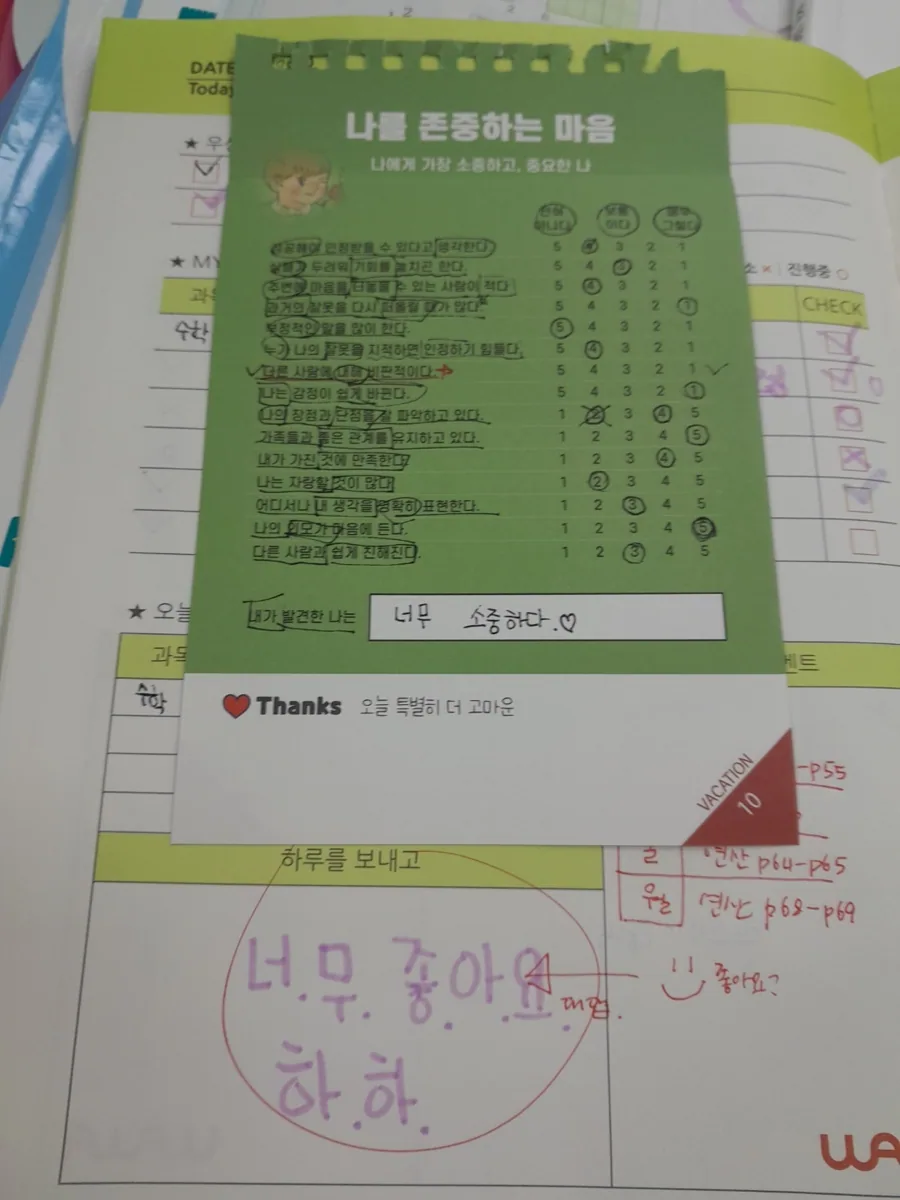 DATE
Today
★ 우
나를 존중하는 마음
나에게 가장 소중하고, 중요한 나
전혀 아니다 보통 이다 매우 그렇다
성공해야 인정받을 수 있다고 생각한다. 5 4 3 2 1
실패가 두려워 기회를 놓치곤 한다. 5 4 3 2 1
주변에 마음을 터놓을 수 있는 사람이 적다. 5 4 3 2 1
과거의 잘못을 다시 떠올릴 때가 많다. 5 4 3 2 1
부정적인 말을 많이 한다. 5 4 3 2 1
누가 나의 잘못을 지적하면 인정하기 힘들다. 5 4 3 2 1
다른 사람에 대해 비판적이다. 5 4 3 2 1
나는 감정이 쉽게 바뀐다. 5 4 3 2 1
나의 장점과 단점을 잘 파악하고 있다. 1 2 3 4 5
가족들과 좋은 관계를 유지하고 있다. 1 2 3 4 5
내가 가진 것에 만족한다. 1 2 3 4 5
나는 자랑할 것이 많다. 1 2 3 4 5
어디서나 내 생각을 명확히 표현한다. 1 2 3 4 5
나의 외모가 마음에 든다. 1 2 3 4 5
다른 사람과 쉽게 친해진다. 1 2 3 4 5
내가 발견한 나는 너무 소중하다.♡
Thanks 오늘 특별히 더 고마운
VACATION
10
★ MY
진행중 ○
CHECK
수학
★ 오늘
과목
수학
-p55
연산 p64-p65
월 연산 p68-p69
하루를 보내고
너.무.좋.아.요.
하.하.
대협.
좋아요?
WA